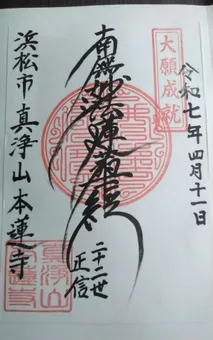 大願成就
令和七年四月十一日
南無妙法蓮華経
二十二世
正信
浜松市 真浄山 本蓮寺
真浄山
本蓮寺